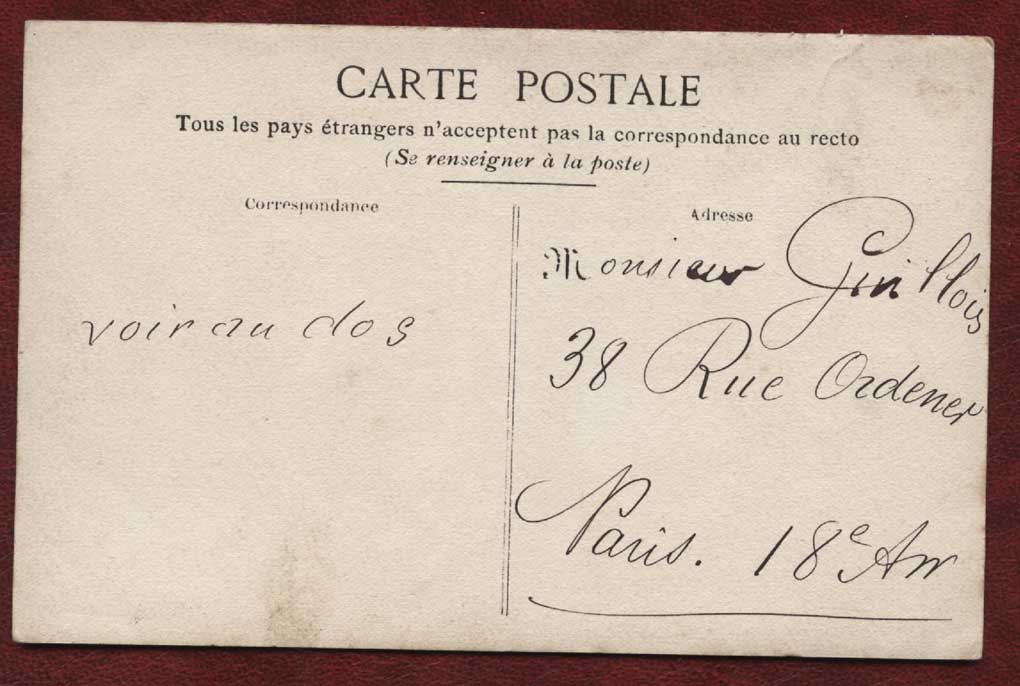 CARTE POSTALE
Tous les pays étrangers n'acceptent pas la correspondance au recto
(Se renseigner à la poste)
Correspondance
Adresse
voir au dos
Monsieur Guillois
38 Rue Ordener
Paris. 18e Arr